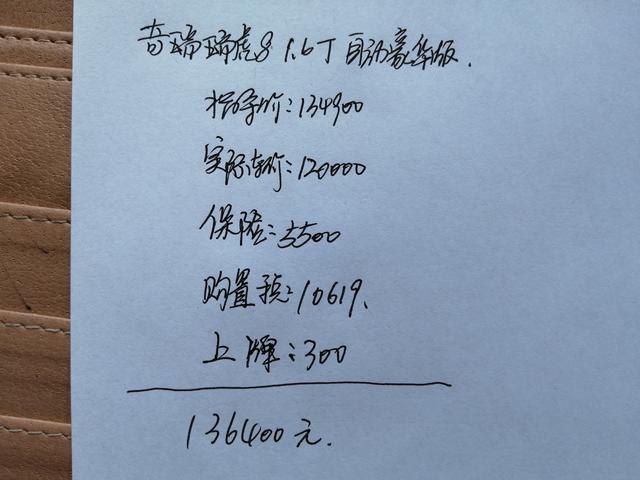 奇瑞瑞虎8 1.6T自动豪华版.
指导价:134900
实际车价:120000
保险:5500
购置税:10619.
上牌:300
136400元.